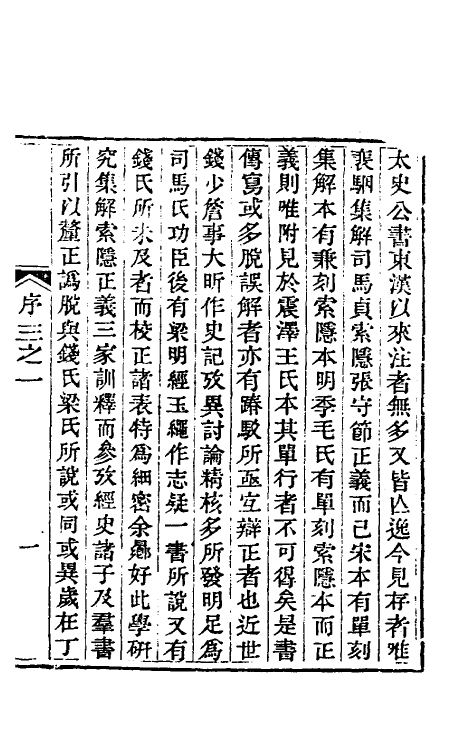 太史公書東漢以來注者無多又皆亾逸今見存者唯
裴駰集解司馬貞索隱張守節正義而已宋本有單刻
集解本有兼刻索隱本明季毛氏有單刻索隱本而正
義則唯附見於震澤王氏本其單行者不可得矣是書
傳寫或多脫誤解者亦有踳駁所亟宜辯正者也近世
錢少詹事大昕作史記攷異討論精核多所發明足爲
司馬氏功臣後有梁明經玉繩作志疑一書所說又有
錢氏所未及者而校正諸表特爲細密余曏好此學硏
究集解索隱正義三家訓釋而參攷經史諸子及羣書
所引以釐正譌脫與錢氏梁氏所說或同或異歲在丁
序三之一
一